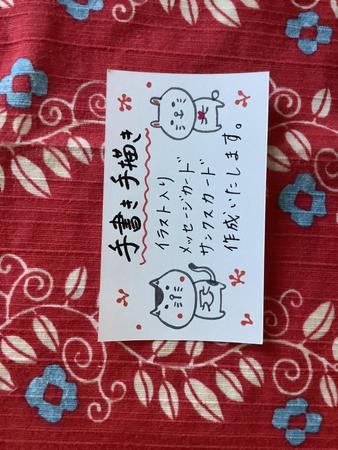 手書き手描き
イラスト入り
メッセージカード
サンクスカード
作成いたします。